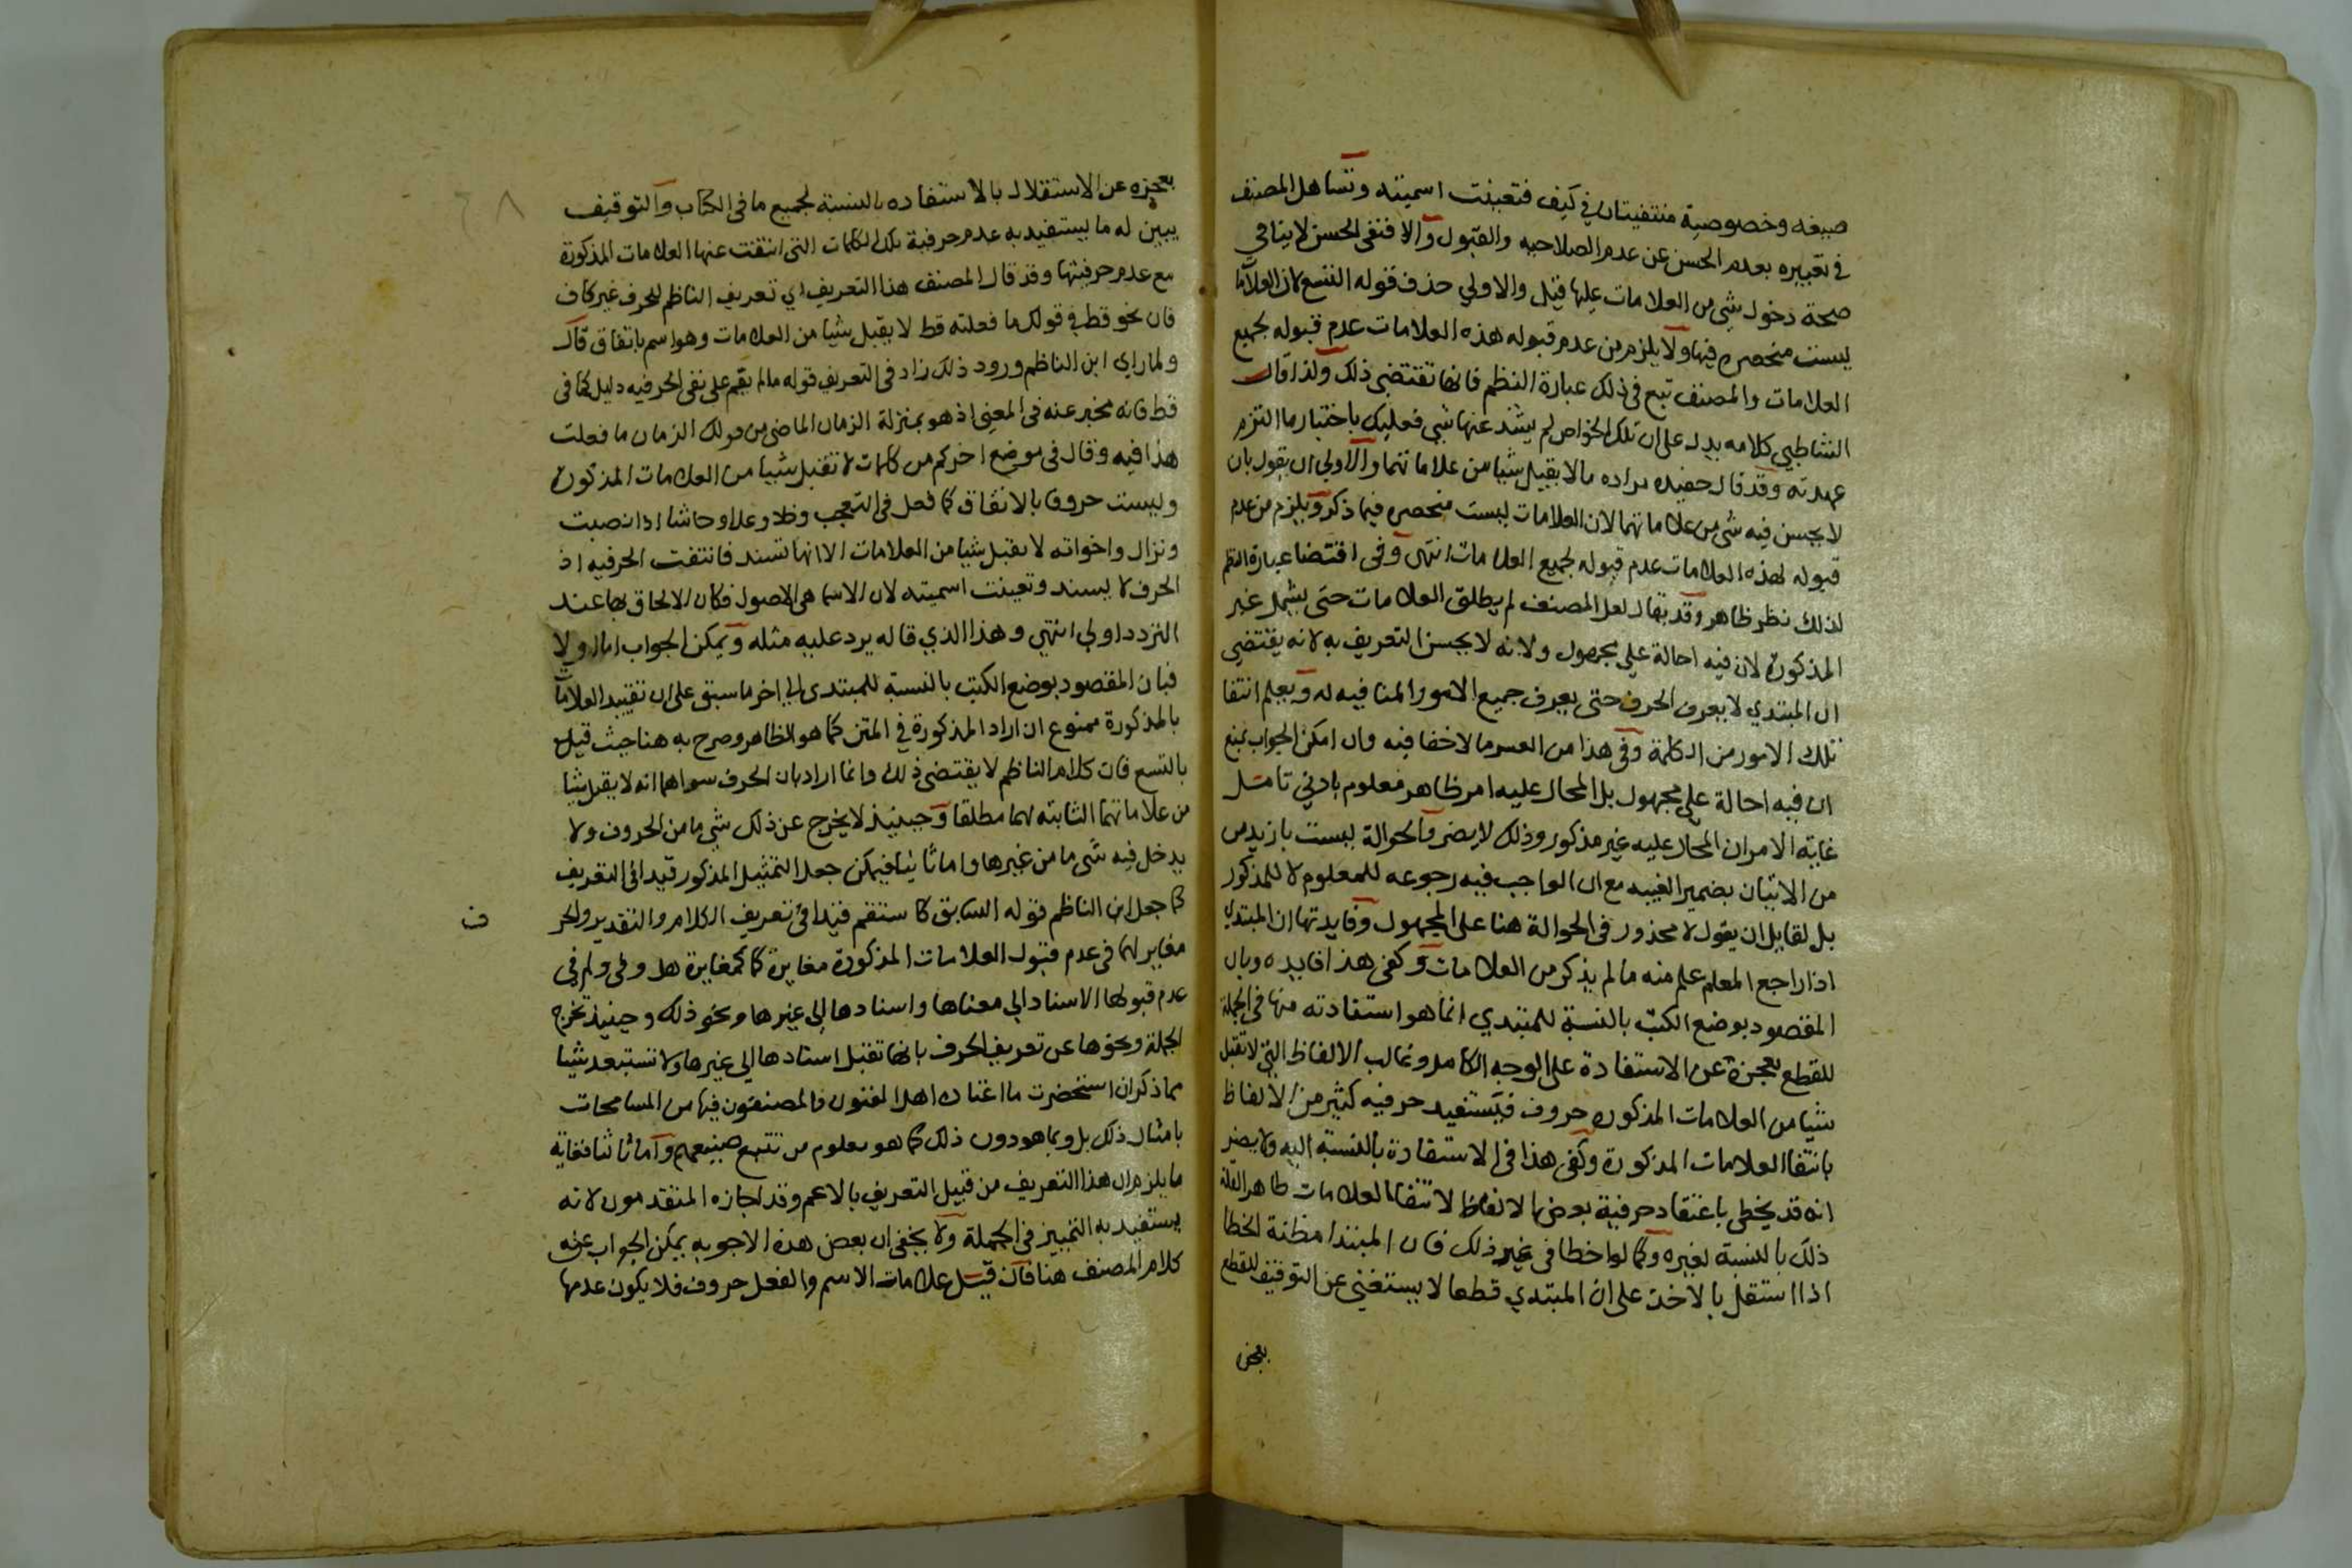 صيغه وخصوصية منتفيتان في كيف فتعينت اسميته وتساهل المصنف
في تعبيره بعدم الحسن عن عدم الصلاحيه والقبول والا فنفى الحسن لا ينافي
صحة دخول شي من العلامات عليها قيل والاولي حذف قوله التسع لان العلاما
ليست منحصره فيها ولا يلزم من عدم قبوله هذه العلامات عدم قبوله لجميع
العلامات والمصنف تبع في ذلك عبارة النظم فانها تقتضي ذلك ولذا قال
الشاطبي كلامه يدل على ان تلك الخواص لم يشذ عنها شي فعليك باختبار ما التزم
عهدته وقد قال حفيده مراده ما لا يقبل شيا من علاماتهما والاولي ان يقول بان
لا يحسن فيه شي من علاماتهما لان العلامات ليست منحصره فيما ذكر ويلزم من عدم
قبوله لهذه العلامات عدم قبوله لجميع العلامات انتهى وفى اقتضا عبارة النظم
لذلك نظر ظاهر وقد يقال لعل المصنف لم يطلق العلامات حتى يشمل غير
المذكورة لان فيه احالة علي مجهول ولانه لا يحسن التعريف به لانه يقتضي
ان المبتدي لا يعرف الحرف حتى يعرف جميع الامور المنافيه له ويعلم انتفا
تلك الامور من الكلمة وفى هذا من العسر ما لا خفا فيه وان امكن الجواب بمنع
ان فيه احالة علي مجهول بل المحال عليه امر ظاهر معلوم بادني تامل
غاية الامر ان المحال عليه غير مذكور وذلك لا يضر والحوالة ليست بازيد من
من الاتيان بضمير الغيبه مع ان الواجب فيه رجوعه للمعلوم لا للمذكور
بل لقايل ان يقول لا محذور فى الحوالة هنا على المجهول وفايدتها ان المبتدي
اذا راجع المعلم علم منه ما لم يذكر من العلامات وكفى هذا فايده وبان
المقصود بوضع الكتب بالنسبة للمبتدي انما هو استفادته منها فى الجملة
للقطع بعجزه عن الاستفادة على الوجه الكامل وغالب الالفاظ التي لا تقبل
شيا من العلامات المذكوره حروف فيستفيد حرفيه كثير من الالفاظ
بانتفا العلامات المذكورة وكفى هذا فى الاستفادة بالنسبة اليه ولا يضر
انه قد يخطي باعتقاد حرفية بعض الالفاظ لانتفا العلامات ظاهر القلة
ذلك بالنسبة لغيره وكما لو اخطا فى غير ذلك فان المبتدا مظنة الخطا
اذا استقل بالاخذ على ان المبتدي قطعا لا يستغني عن التوقيف للقطع
بعجزه
بعجزه عن الاستقلال بالاستفاده بالنسبة لجميع ما فى الكتاب والتوقيف
يبين له ما يستفيد به عدم حرفية تلك الكلمات التى انتفت عنها العلامات المذكورة
مع عدم حرفيتها وقد قال المصنف هذا التعريف اي تعريف الناظم للحرف غير كاف
فان نحو قط في قولك ما فعلته قط لا يقبل شيا من العلامات وهو اسم باتفاق قال
ولما راي ابن الناظم ورود ذلك زاد فى التعريف قوله ما لم يقم على نفى الحرفيه دليل كما فى
قط فانه مخبر عنه فى المعنى اذ هو بمنزلة الزمان الماضي من قولك الزمان ما فعلت
هذا فيه وقال فى موضع اخر كم من كلمات لا تقبل شيا من العلامات المذكورة
وليست حروفا بالاتفاق كما فعل فى التعجب وخلا وعدا وحاشا اذا نصبت
ونزال واخواته لا يقبل شيا من العلامات الا انها تسند فانتفت الحرفيه اذ
الحرف لا يسند وتعينت اسميته لان الاسما هي الاصول فكان الالحاق بها عند
التردد اولي انتهي وهذا الذي قاله يرد عليه مثله ويمكن الجواب اما اولا
فبان المقصود بوضع الكتب بالنسبة للمبتدي الي اخر ما سبق على ان تقييد العلامات
بالمذكورة ممنوع ان اراد المذكورة في المتن كما هو الظاهر وصرح به هنا حيث قيل
بالتسع فان كلام الناظم لا يقتضى ذلك وانما اراد بان الحرف سواهما انه لا يقبل شيا
من علاماتهما الثابته لهما مطلقا وحينيذ لا يخرج عن ذلك شي ما من الحروف ولا
يدخل فيه شي ما من غيرها واما ثانيا فيمكن جعل التمثيل المذكور قيدا فى التعريف
كما جعل ابن الناظم قوله السابق كاستقم قيدا فى تعريف الكلام والتقدير والحر
ف
مغاير لهما فى عدم قبول العلامات المذكورة مغايرة كمغايرة هل وفى ولم فى
عدم قبولها الاسناد الي معناها واسنادها الي غيرها ونحو ذلك وحينيذ تخرج
الجملة ونحوها عن تعريف الحرف بانها تقبل اسنادها الي غيرها ولا تستبعد شيا
مما ذكر ان استحضرت ما اعتاده اهل الفنون والمصنفون فيها من المسامحات
بامثال ذلك بل وبما هو دون ذلك كما هو معلوم من تتبع صنيعهم واما ثالثا فغاية
ما يلزم ان هذا التعريف من قبيل التعريف بالاعم وقد اجازه المتقدمون لانه
يستفيد به التمييز فى الجملة ولا يخفى ان بعض هذه الاجوبه يمكن الجواب عن
كلام المصنف هنا فان قيل علامات الاسم والفعل حروف فلا يكون عدمها